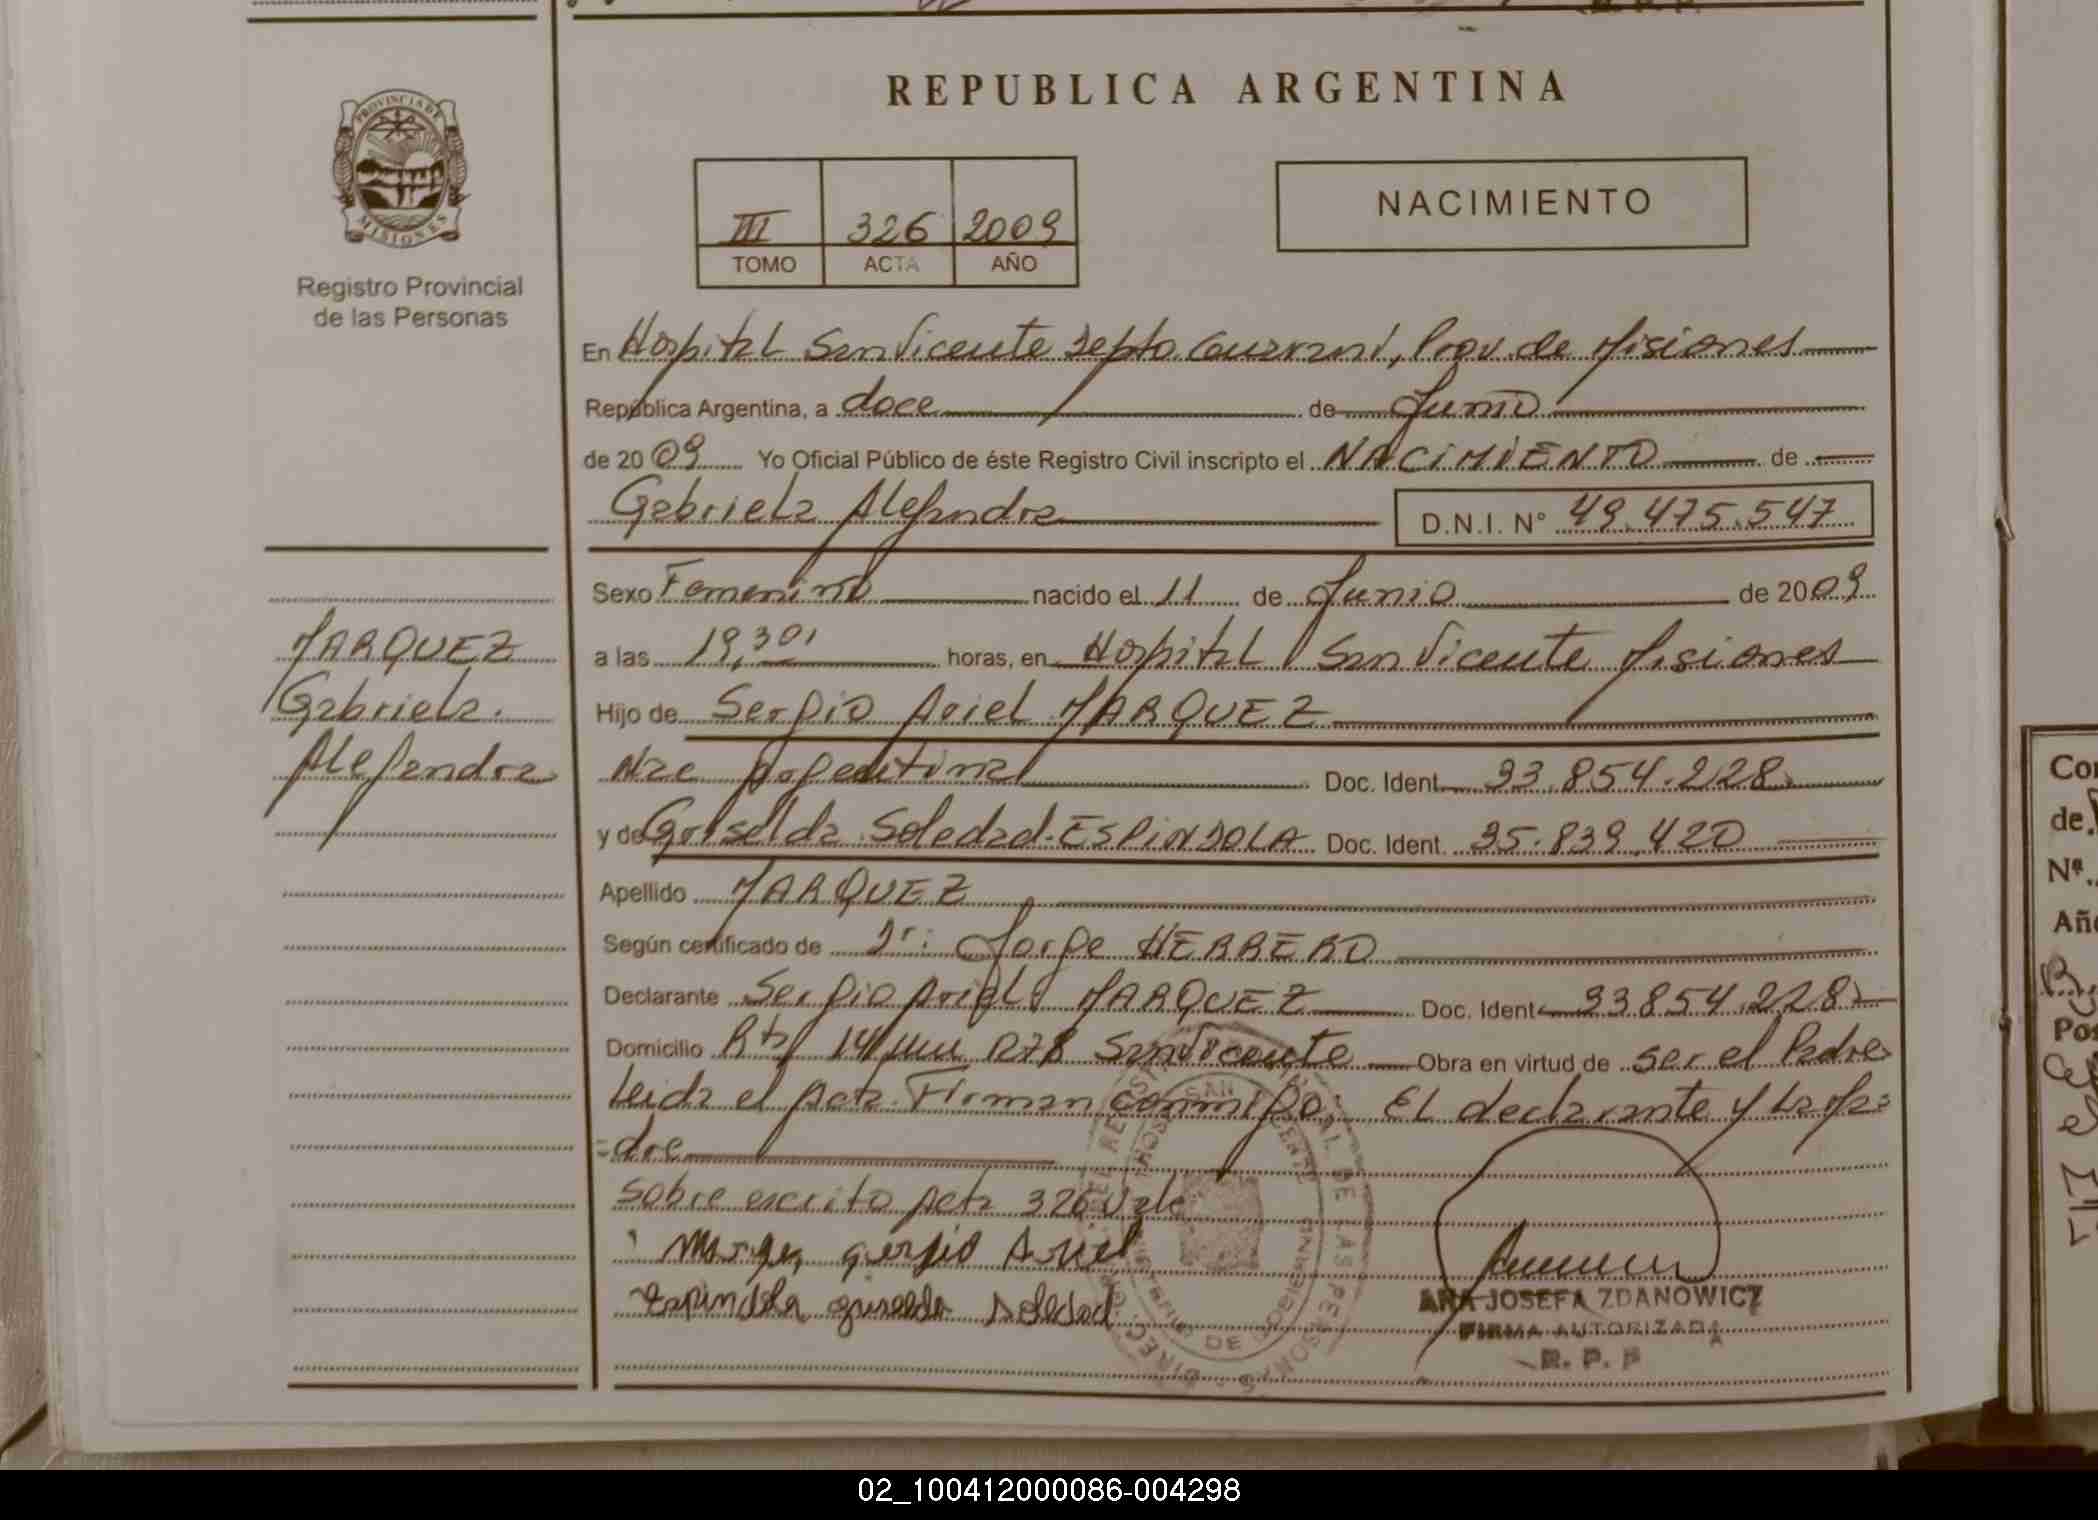 REPUBLICA ARGENTINA
PROVINCIA DE
MISIONES
Registro Provincial
de las Personas
III 326 2009
TOMO ACTA AÑO
NACIMIENTO
En Hospital San Vicente Depto. Guarani, Prov. de Misiones
República Argentina, a doce de Junio
de 2009 Yo Oficial Público de éste Registro Civil inscripto el NACIMIENTO de
Gabriela Alejandra D.N.I. N° 49.475.547
Sexo Femenino nacido el 11 de Junio de 2009
a las 19,30 horas, en Hospital San Vicente Misiones
Hijo de Sergio Ariel MARQUEZ
Nac Argentina Doc. Ident. 33.854.228
y de Griselda Soledad ESPINDOLA Doc. Ident. 35.839.420
Apellido MARQUEZ
Según certificado de Dr: Jorge HERRERO
Declarante Sergio Ariel MARQUEZ Doc. Ident 33854.228
Domicilio 14 San Vicente Obra en virtud de ser el Padre
Leida el Acta Firman conmigo: El declarante y La Ma=
=dre
Sobre escrito Acta 326 Vale
Sergio Ariel
Espindola griselda Soledad
MARQUEZ
Gabriela
Alejandra
ANA JOSEFA ZDANOWICZ
FIRMA AUTORIZADA
R. P. P
Con
de
Nº
Año
Pos
02_100412000086-004298